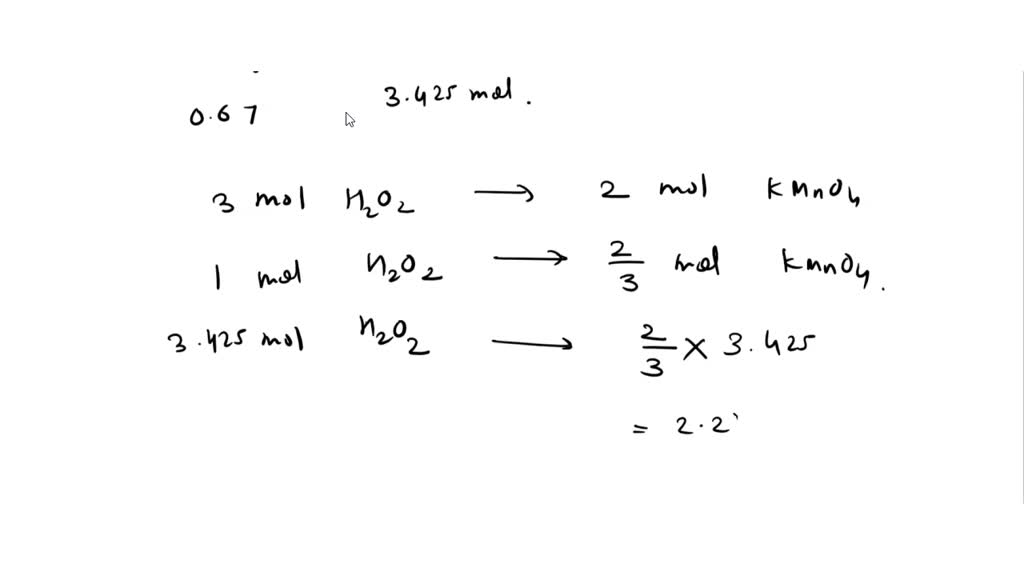 3.425 mol.
0.67
3 mol H₂O₂ → 2 mol KMnO₄
1 mol H₂O₂ → 2/3 mol KMnO₄.
3.425 mol H₂O₂ → 2/3 × 3.425
= 2.2